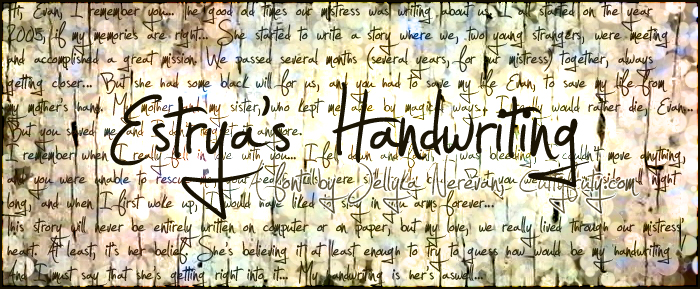 Hi, Evan, I remember you... The good old times our mistress was writing about us. It all started on the year
2005, if my memories are right... She started to write a story where we, two young strangers, were meeting
and accomplished a great mission. We passed several months (several years, for our mistress) together, always
getting closer... But she had some black will for us, and you had to save my life Evan, to save my life from
my mother's hand. My mother and my sister, who kept me by magical ways. I would rather die, Evan...
But you saved me and I don't anymore.
Estrya's Handwriting
I remember when I really fell in love with you... I fell down and I was bleeding, couldn't move anything,
and you were unable to rescue But you night
Font by Jellyka Nerevan
long, and when I first woke up, I would have liked to stay in your arms forever...
This story will never be entirely written on computer or on paper, but my love, we really lived through our mistress'
heart. At least, it's her belief. She's believing it at least enough to try to guess how would be my handwriting
And I must say that she's getting right into it... My handwriting is her's aswell...